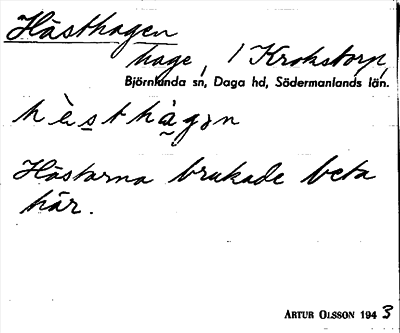 Hästhagen
hage, 1 Krokstorp,
Björnlunda sn, Daga hd, Södermanlands län.
hè̱sthà̰gǝn
Hästarna brukade beta
här.
ARTUR OLSSON 1943